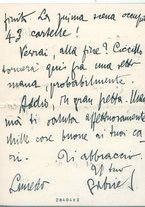 finito la prima scena occupa
43 cartelle!
Verrai, alla fine?
tornerà qui fra una setti-
mana, probabilmente.
Addio, in gran fretta.
ti saluta affettuosamente
mille cose buone ai tuoi ca-
ri.
Ti abbraccio.
Il tuo
Lunedì
Gabriel